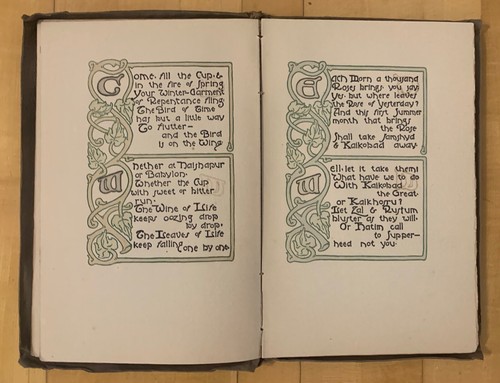 Come, fill the Cup, &
in the fire of Spring
Your Winter-Garment
of Repentance fling:
The Bird of Time
has but a little way
To flutter—
and the Bird
is on the Wing.
Whether at Naishapur
or Babylon,
Whether the Cup
with sweet or bitter
run,
The Wine of Life
keeps oozing drop
by drop,
The Leaves of Life
keep falling
one by one.
Each Morn a thousand
Roses brings, you say;
Yes, but where leaves
the Rose of Yesterday?
And this first Summer
month that brings
the Rose
Shall take Jamshyd
& Kaikobad away.
Well, let it take them!
What have we to do
With Kaikobad
the Great,
or Kaikhosru?
Let Zal & Rustum
bluster as they will,
Or Hatim call
to Supper—
heed not you.